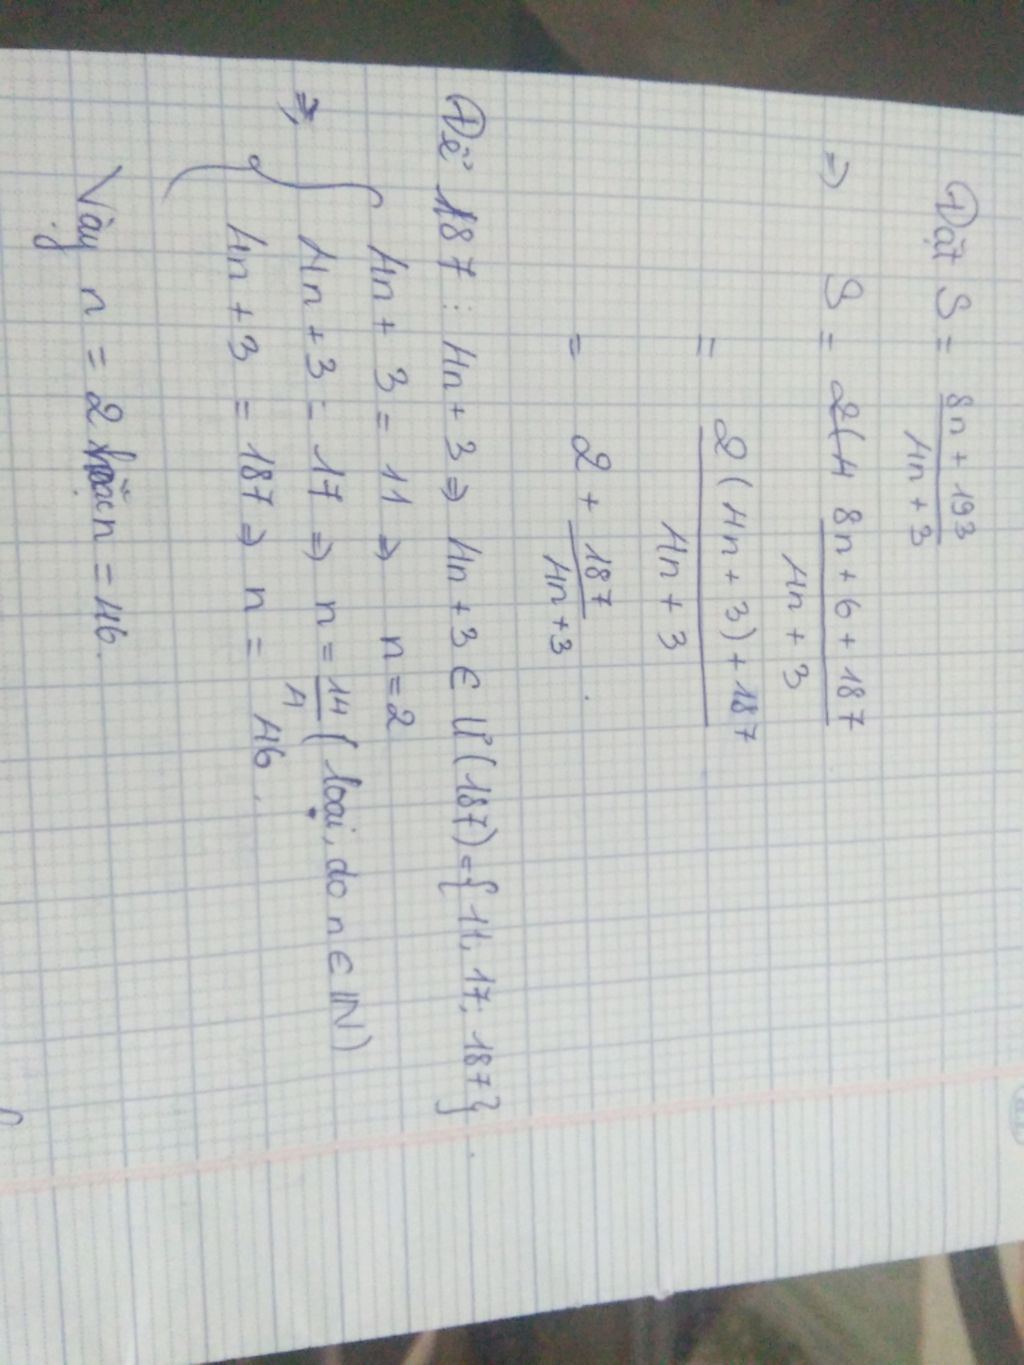 Đặt S = \frac{8n + 193}{4n + 3}
=> S = \frac{8n + 6 + 187}{4n + 3}
= \frac{2(4n + 3) + 187}{4n + 3}
= 2 + \frac{187}{4n + 3}.
Để 187 : 4n + 3 => 4n + 3 ∈ Ư(187) = {11, 17; 187}.
=> { 4n + 3 = 11 => n = 2
4n + 3 = 17 => n = \frac{14}{4} (loại, do n ∈ IN)
4n + 3 = 187 => n = 46.
Vậy n = 2 hoặc n = 46.